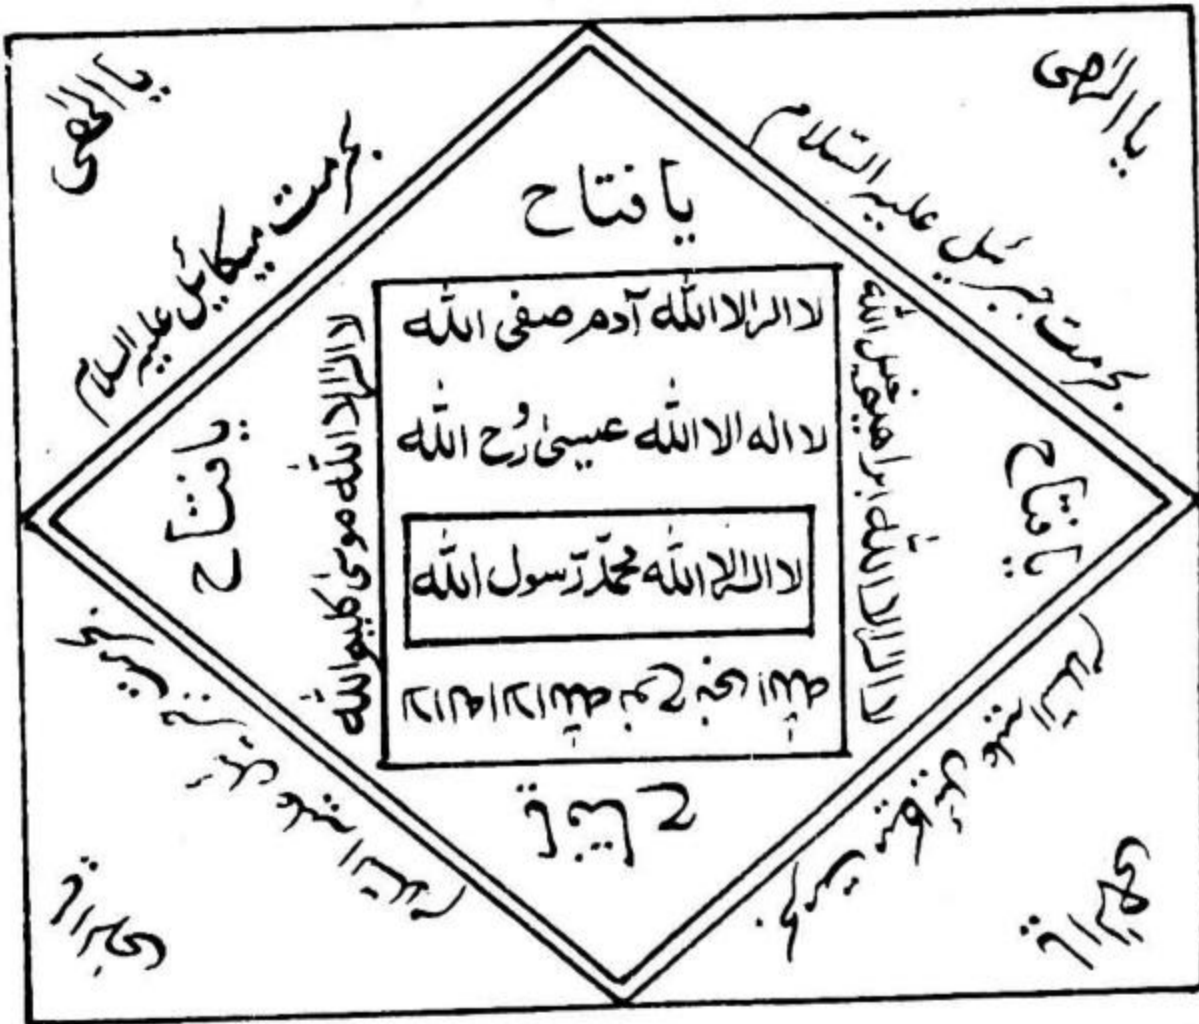 یا الٰھی
یا الٰھی
بحرمت جبرئیل علیہ السّلام
بحرمت میکائیل علیہ السلام
یا فتاح
لا الہ الا اللّٰہ آدم صفی اللّٰہ
لا الہ الا اللّٰہ عیسیٰ رُح اللّٰہ
لا الہ الا اللّٰہ محمدّ رّسول اللّٰہ
لا الہ الا اللّٰہ نوح نجی اللّٰہ
لا الہ الا اللّٰہ ابراھیم خلیل اللّٰہ
لا الہ الا اللّٰہ موسیٰ کلیم اللّٰہ
یا فتاح
یا فتاح
یا فتاح
بحرمت میکائیل علیہ السّلام
بحرمت علیہ السّلام
یا الٰھی
یا الٰھی